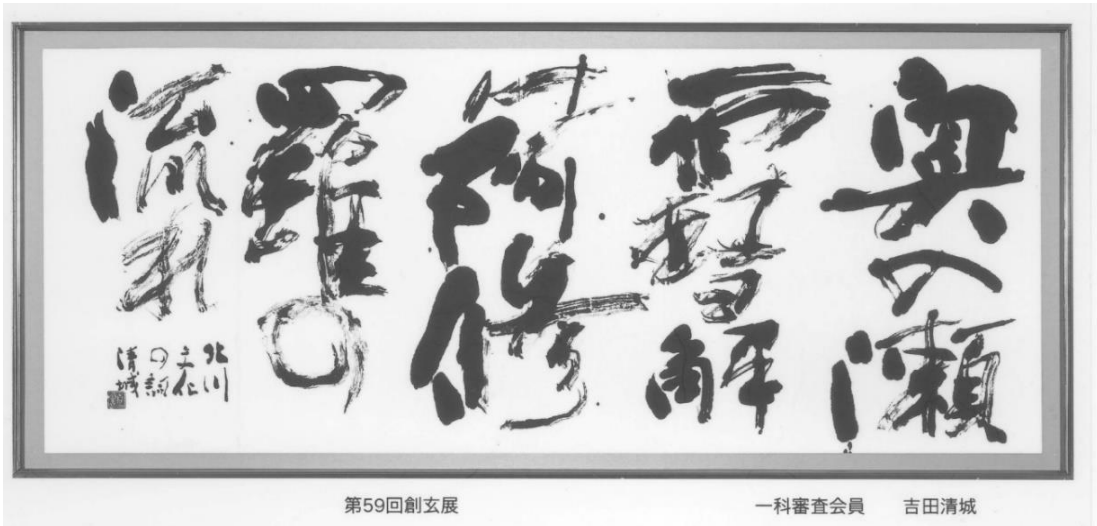 奥の瀬
雪解
阿修
羅の
流れ
北川
の詞
清城
第59回創玄展
一科審査会員 吉田清城